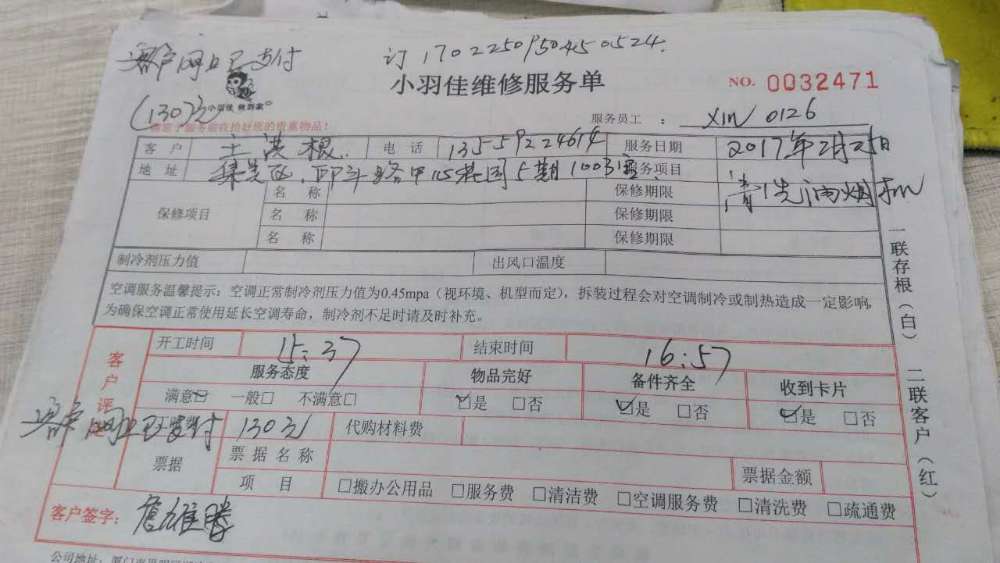 客户网上已支付 订 170225095045 0524
(130元)
小羽佳 做到家
小羽佳维修服务单
NO. 0032471
服务员工 : XIN 0126
客 户 王洪根 电 话 13559224614 服务日期 2017年2月25日
地 址 服务项目 清洗油烟机
保修项目 名 称 保修期限
名 称 保修期限
名 称 保修期限
制冷剂压力值 出风口温度
空调服务温馨提示：空调正常制冷剂压力值为0.45mpa（视环境、机型而定），拆装过程会对空调制冷或制热造成一定影响，
为确保空调正常使用延长空调寿命，制冷剂不足时请及时补充。
一联存根（白） 二联客户（红）
开工时间 15:37 结束时间 16:57
客户评
服务态度 物品完好 备件齐全 收到卡片
满意☑ 一般□ 不满意□ ☑是 □否 ☑是 □否 ☑是 □否
客户网上已支付 130元 代购材料费
票据 票 据 名 称 票据金额
项 目 □搬办公用品 □服务费 □清洁费 □空调服务费 □清洗费 □疏通费
客户签字：
公司地址：厦门市思明区